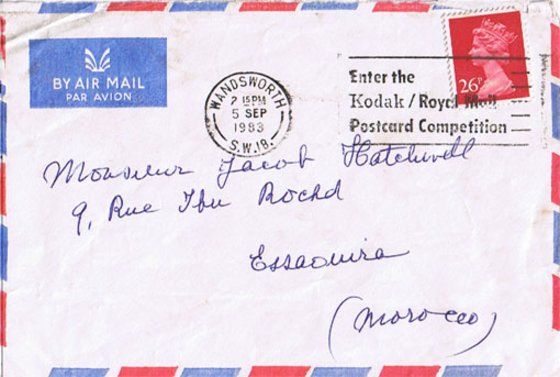 BY AIR MAIL
PAR AVION
WANDSWORTH
2 15 PM
5 SEP
1983
S.W.18.
Enter the
Kodak / Royal Mail
Postcard Competition
26P
Monsieur Jacob Hatchwell
9, Rue Ibn Rochd
Essaouira
(Morocco)